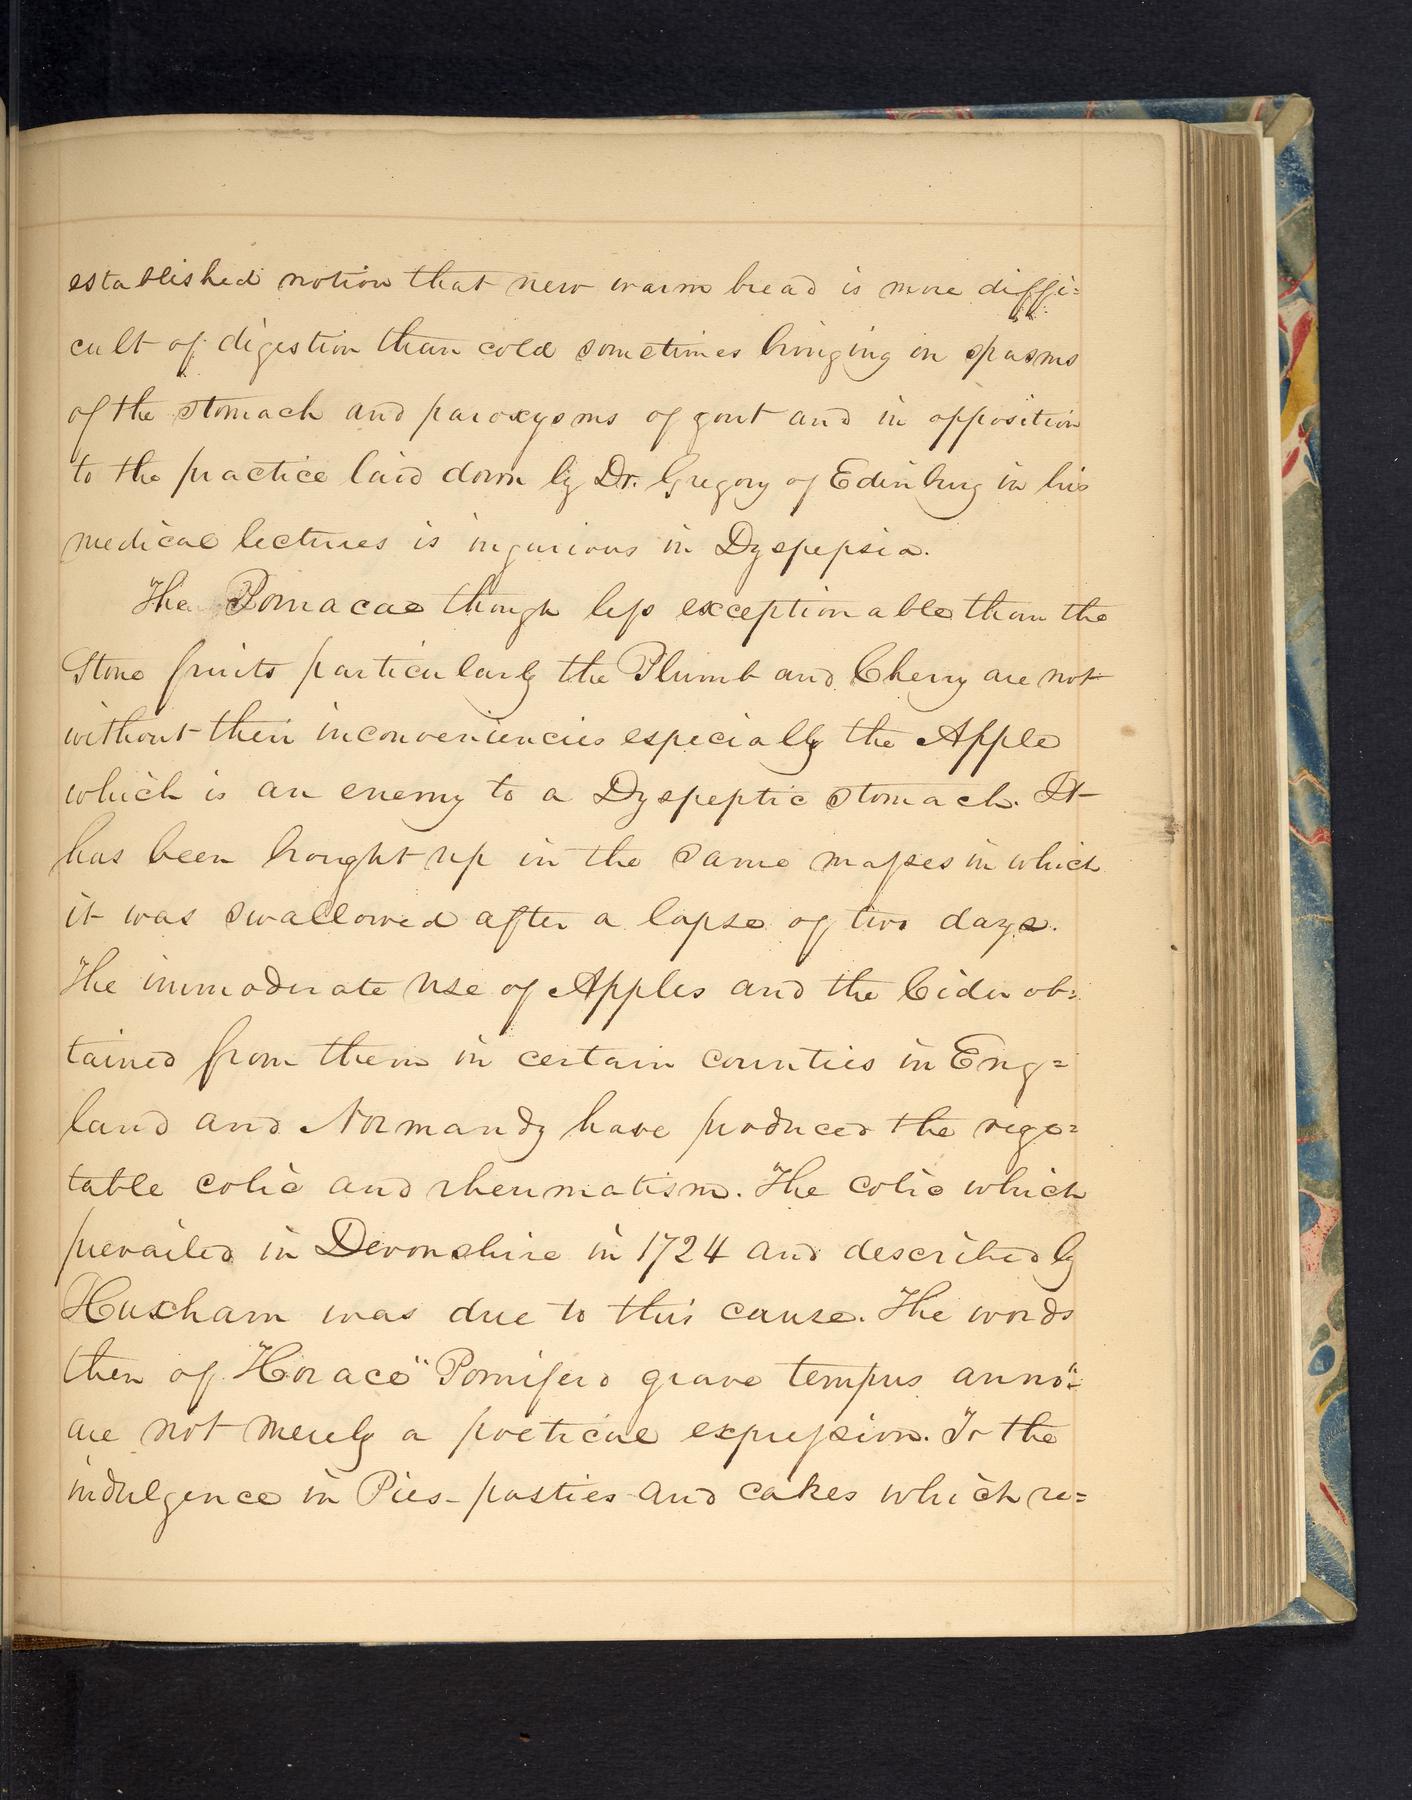 established notion that new warm bread is more diffi=
cult of digestion than cold sometimes bringing on spasms
of the stomach and paroxysms of gout and in opposition
to the practice laid down by Dr. Gregory of Edinburg in his
medical lectures is injurious in Dyspepsia.
The Pomacae though less exceptionable than the
Stone fruits particularly the Plumb and Cherry are not
without their inconveniencies especially the Apple
which is an enemy to a Dyspeptic stomach. It
has been brought up in the same masses in which
it was swallowed after a lapse of two days.
The immoderate use of Apples and the Cider ob=
tained from them in certain counties in Eng=
land and Normandy have produced the vege=
table colic and rheumatism. The colic which
prevailed in Devonshire in 1724 and described by
Huxham was due to this cause. The words
then of Horace "Pomifero grave tempus anno"
are not merely a poetical expression. To the
indulgence in Pies-pasties and cakes which re=